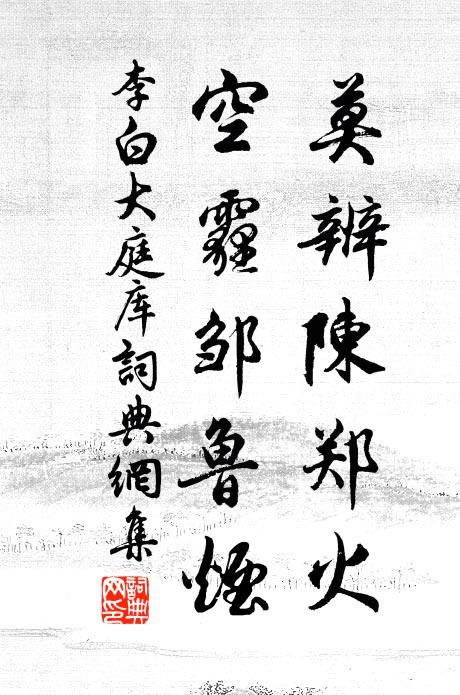 莫辨陳郑火
空霾邹魯煙
李白大庭库詞典網集
詞典网印